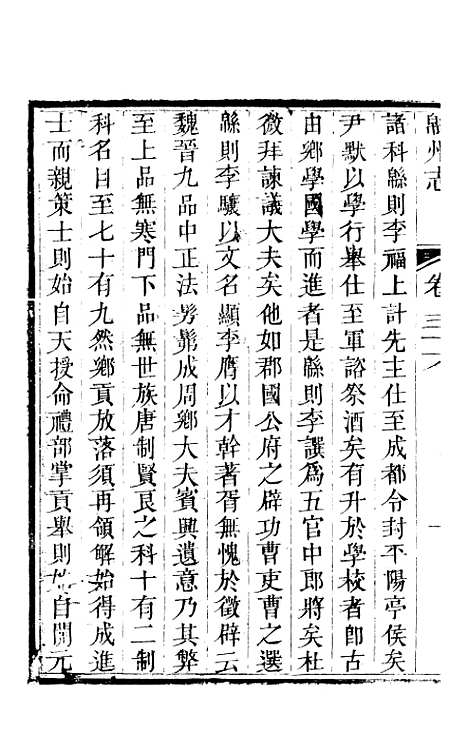 緜州志
卷三十八
諸科緜則李福上計先主仕至成都令封平陽亭侯矣
尹默以學行舉仕至軍諮祭酒矣有升於學校者卽古
由鄉學國學而進者是緜則李譔爲五官中郎將矣杜
微拜諫議大夫矣他如郡國公府之辟功曹吏曹之選
緜則李驤以文名顯李膺以才幹著胥無愧於徵辟云
魏晉九品中正法髣髴成周鄉大夫賓興遺意乃其弊
至上品無寒門下品無世族唐制賢良之科十有二制
科名目至七十有九然鄉貢放落須再領解始得成進
士而親策士則始自天授命禮部掌貢舉則始自開元